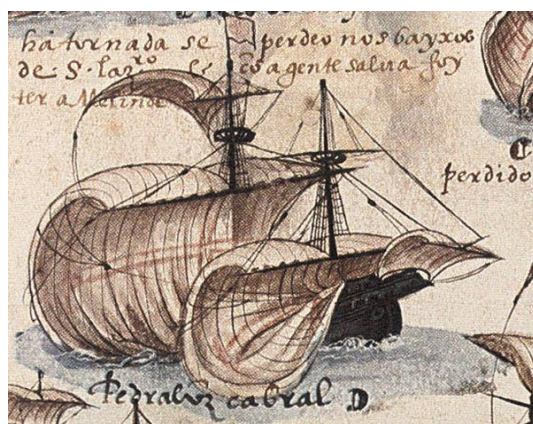 há tornada se perdeo nos bayxos
de S. lazro e a gente salva foy
ter a Melinde
perdido
Pedralvrz cabral D